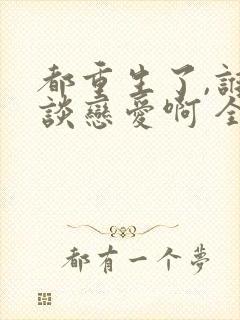 都重生了,誰
談戀愛啊 全
都有一个夢